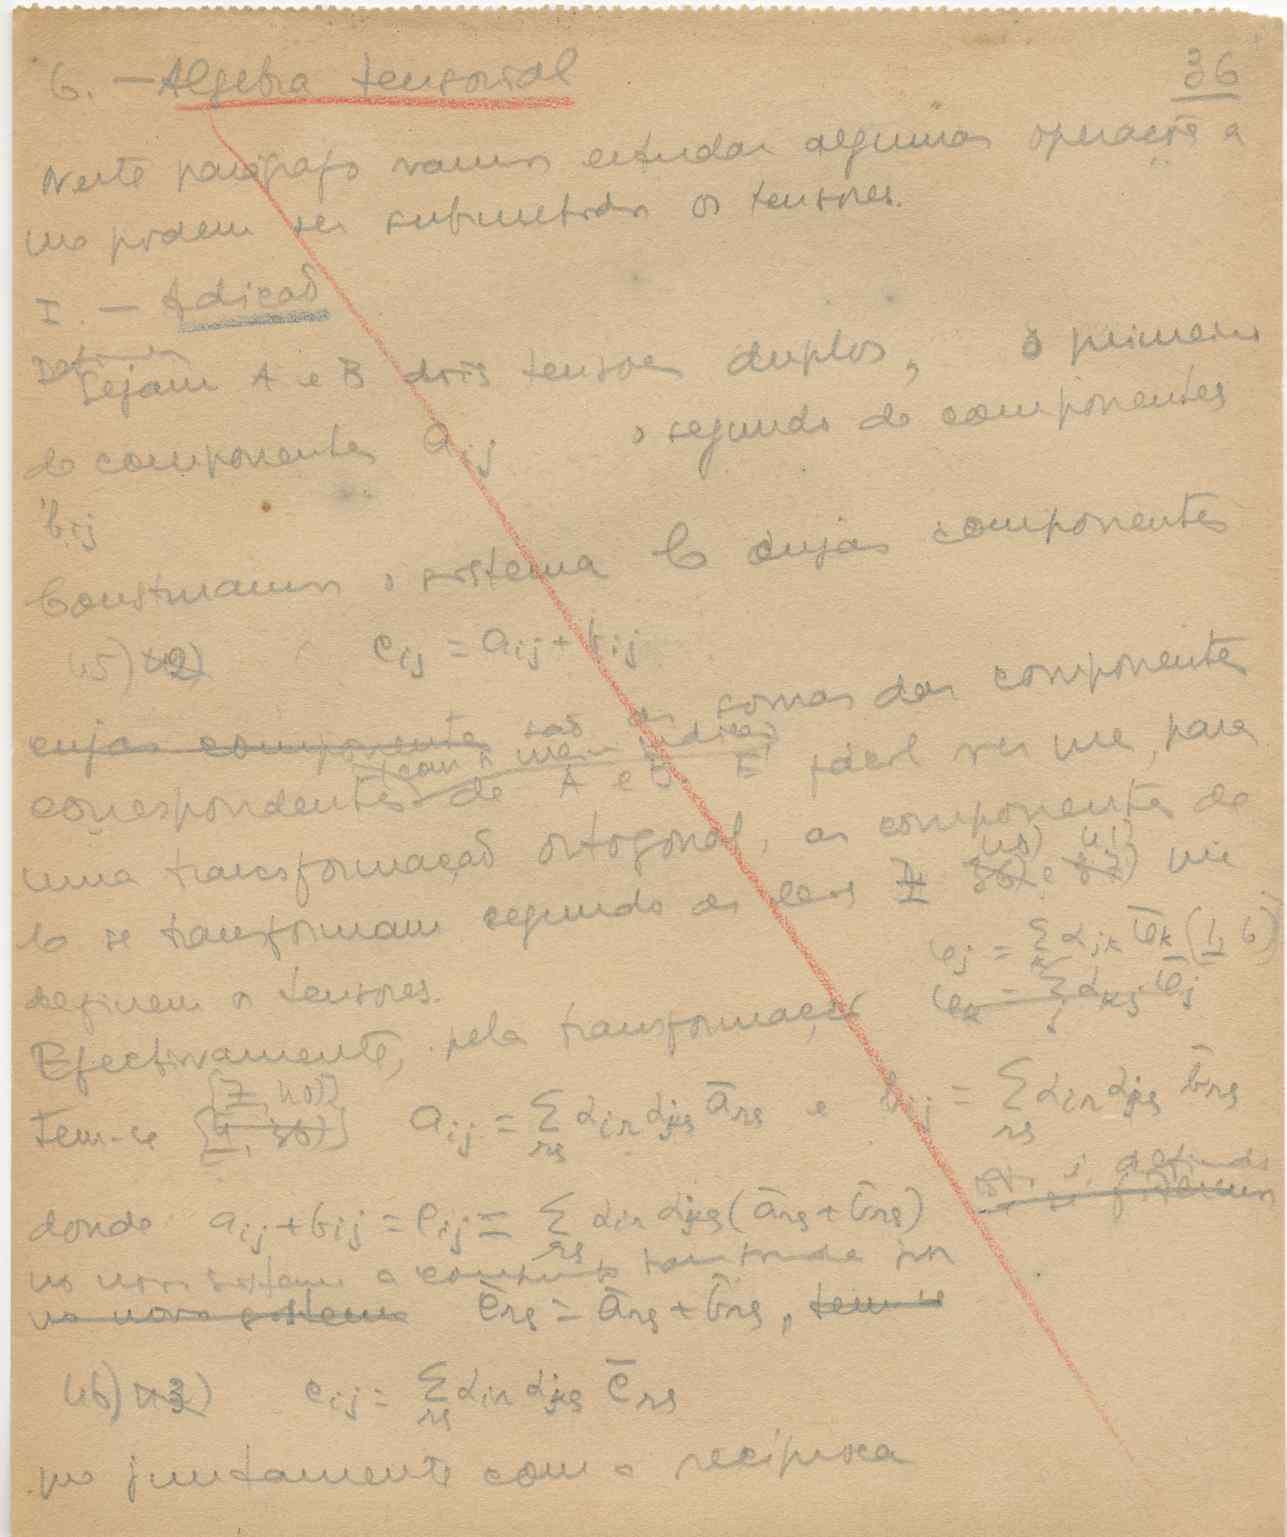 6. — Algebra tensorial
36
Neste parágrafo vamos estudar algumas operações a
que podem ser submetidos os tensores.
I. — Adição
Sejam A e B dois tensores duplos, o primeiro
de componentes a_ij o segundo de componentes
b_ij
Construamos o sistema C cujas componentes
45) 42) c_ij = a_ij + b_ij
cujas componentes são as somas das componentes
com
correspondentes de A e B. É fácil ver que, para
uma transformação ortogonal, as componentes de
C se transformam segundo as leis 7 40) e 41) que
definem os tensores.
φ_j = Σ_k α_jk φ̄_k (1, 6)
Efectivamente, pela transformação
[7, 40)]
Tem-se a_ij = Σ_rs α_ir α_js ā_rs e b_ij = Σ_rs α_ir α_js b̄_rs
donde a_ij + b_ij = c_ij = Σ_rs α_ir α_js (ā_rs + b̄_rs)
no novo sistema
no novo sistema c̄_rs = ā_rs + b̄_rs, tem-se
46) 43) c_ij = Σ_rs α_ir α_js c̄_rs
que juntamente com a recíproca